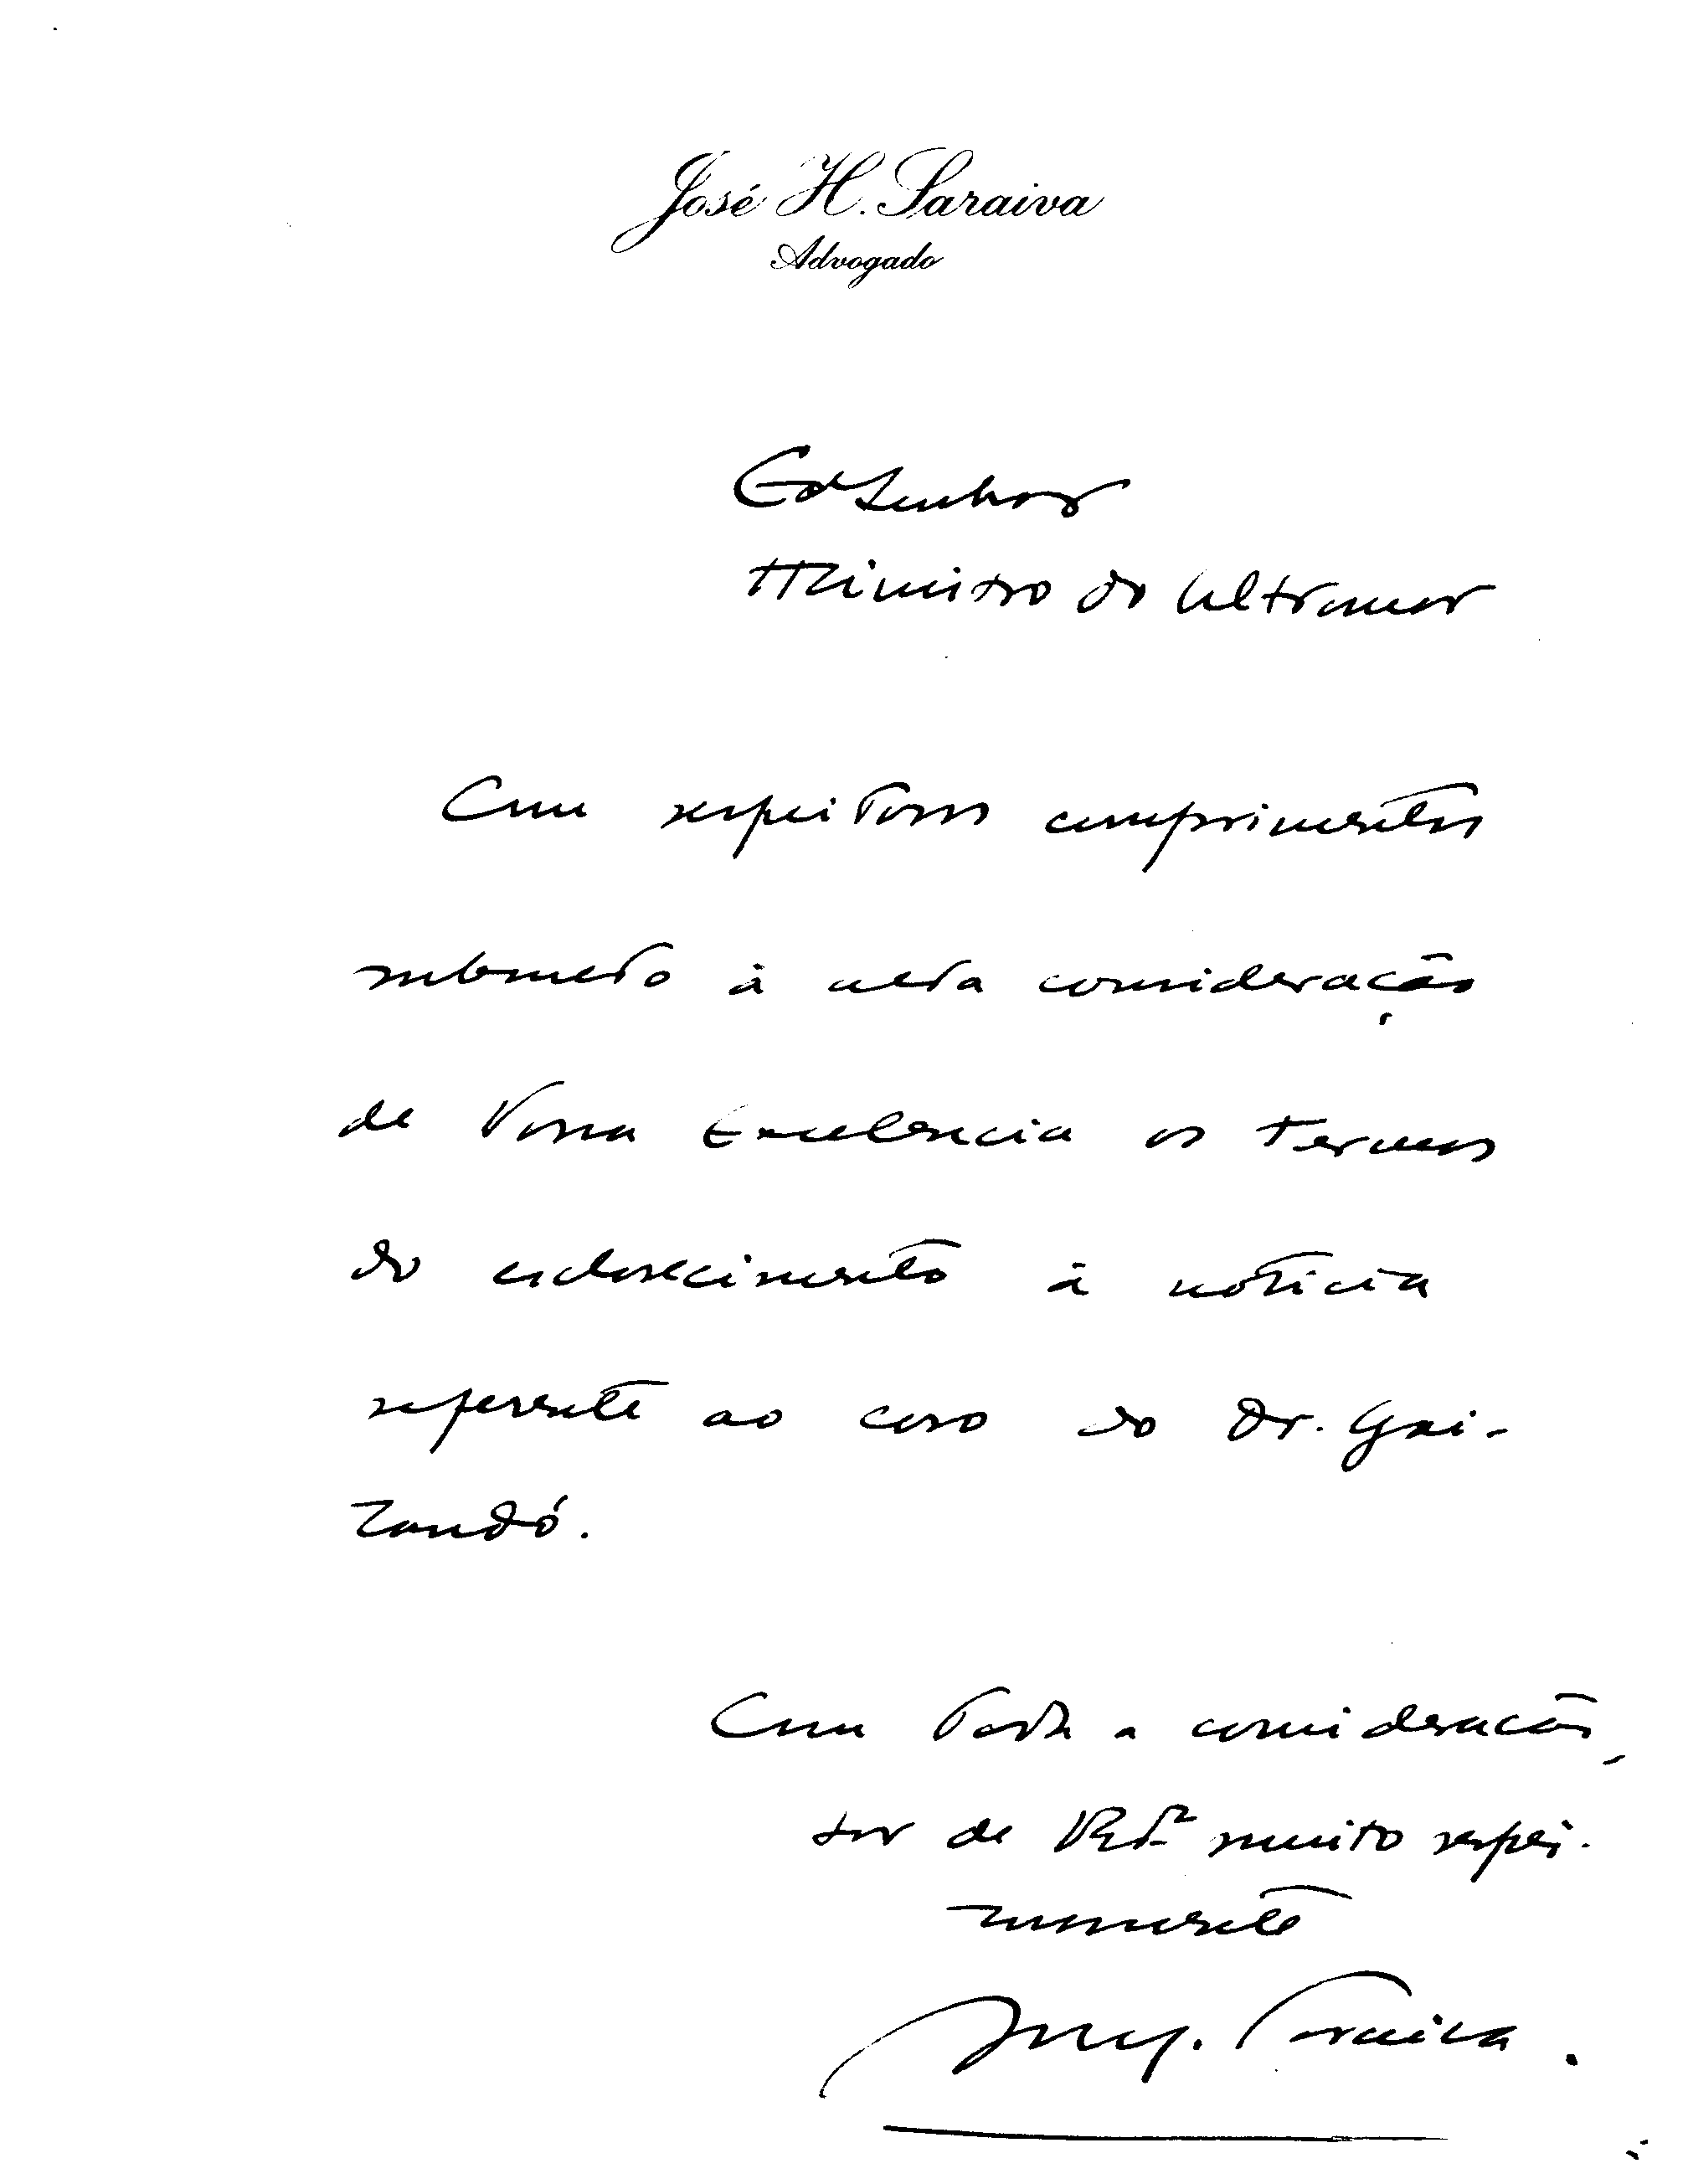 José H. Saraiva
Advogado
Senhor
Ministro do Ultramar
Com respeitosos cumprimentos
submeto à alta consideração
de Vossa Excelencia os termos
do esclarecimento à notícia
referente ao caso do Dr. Gai-
zandó.
Com toda a consideração,
de muito respei-
tosamente
Saraiva.